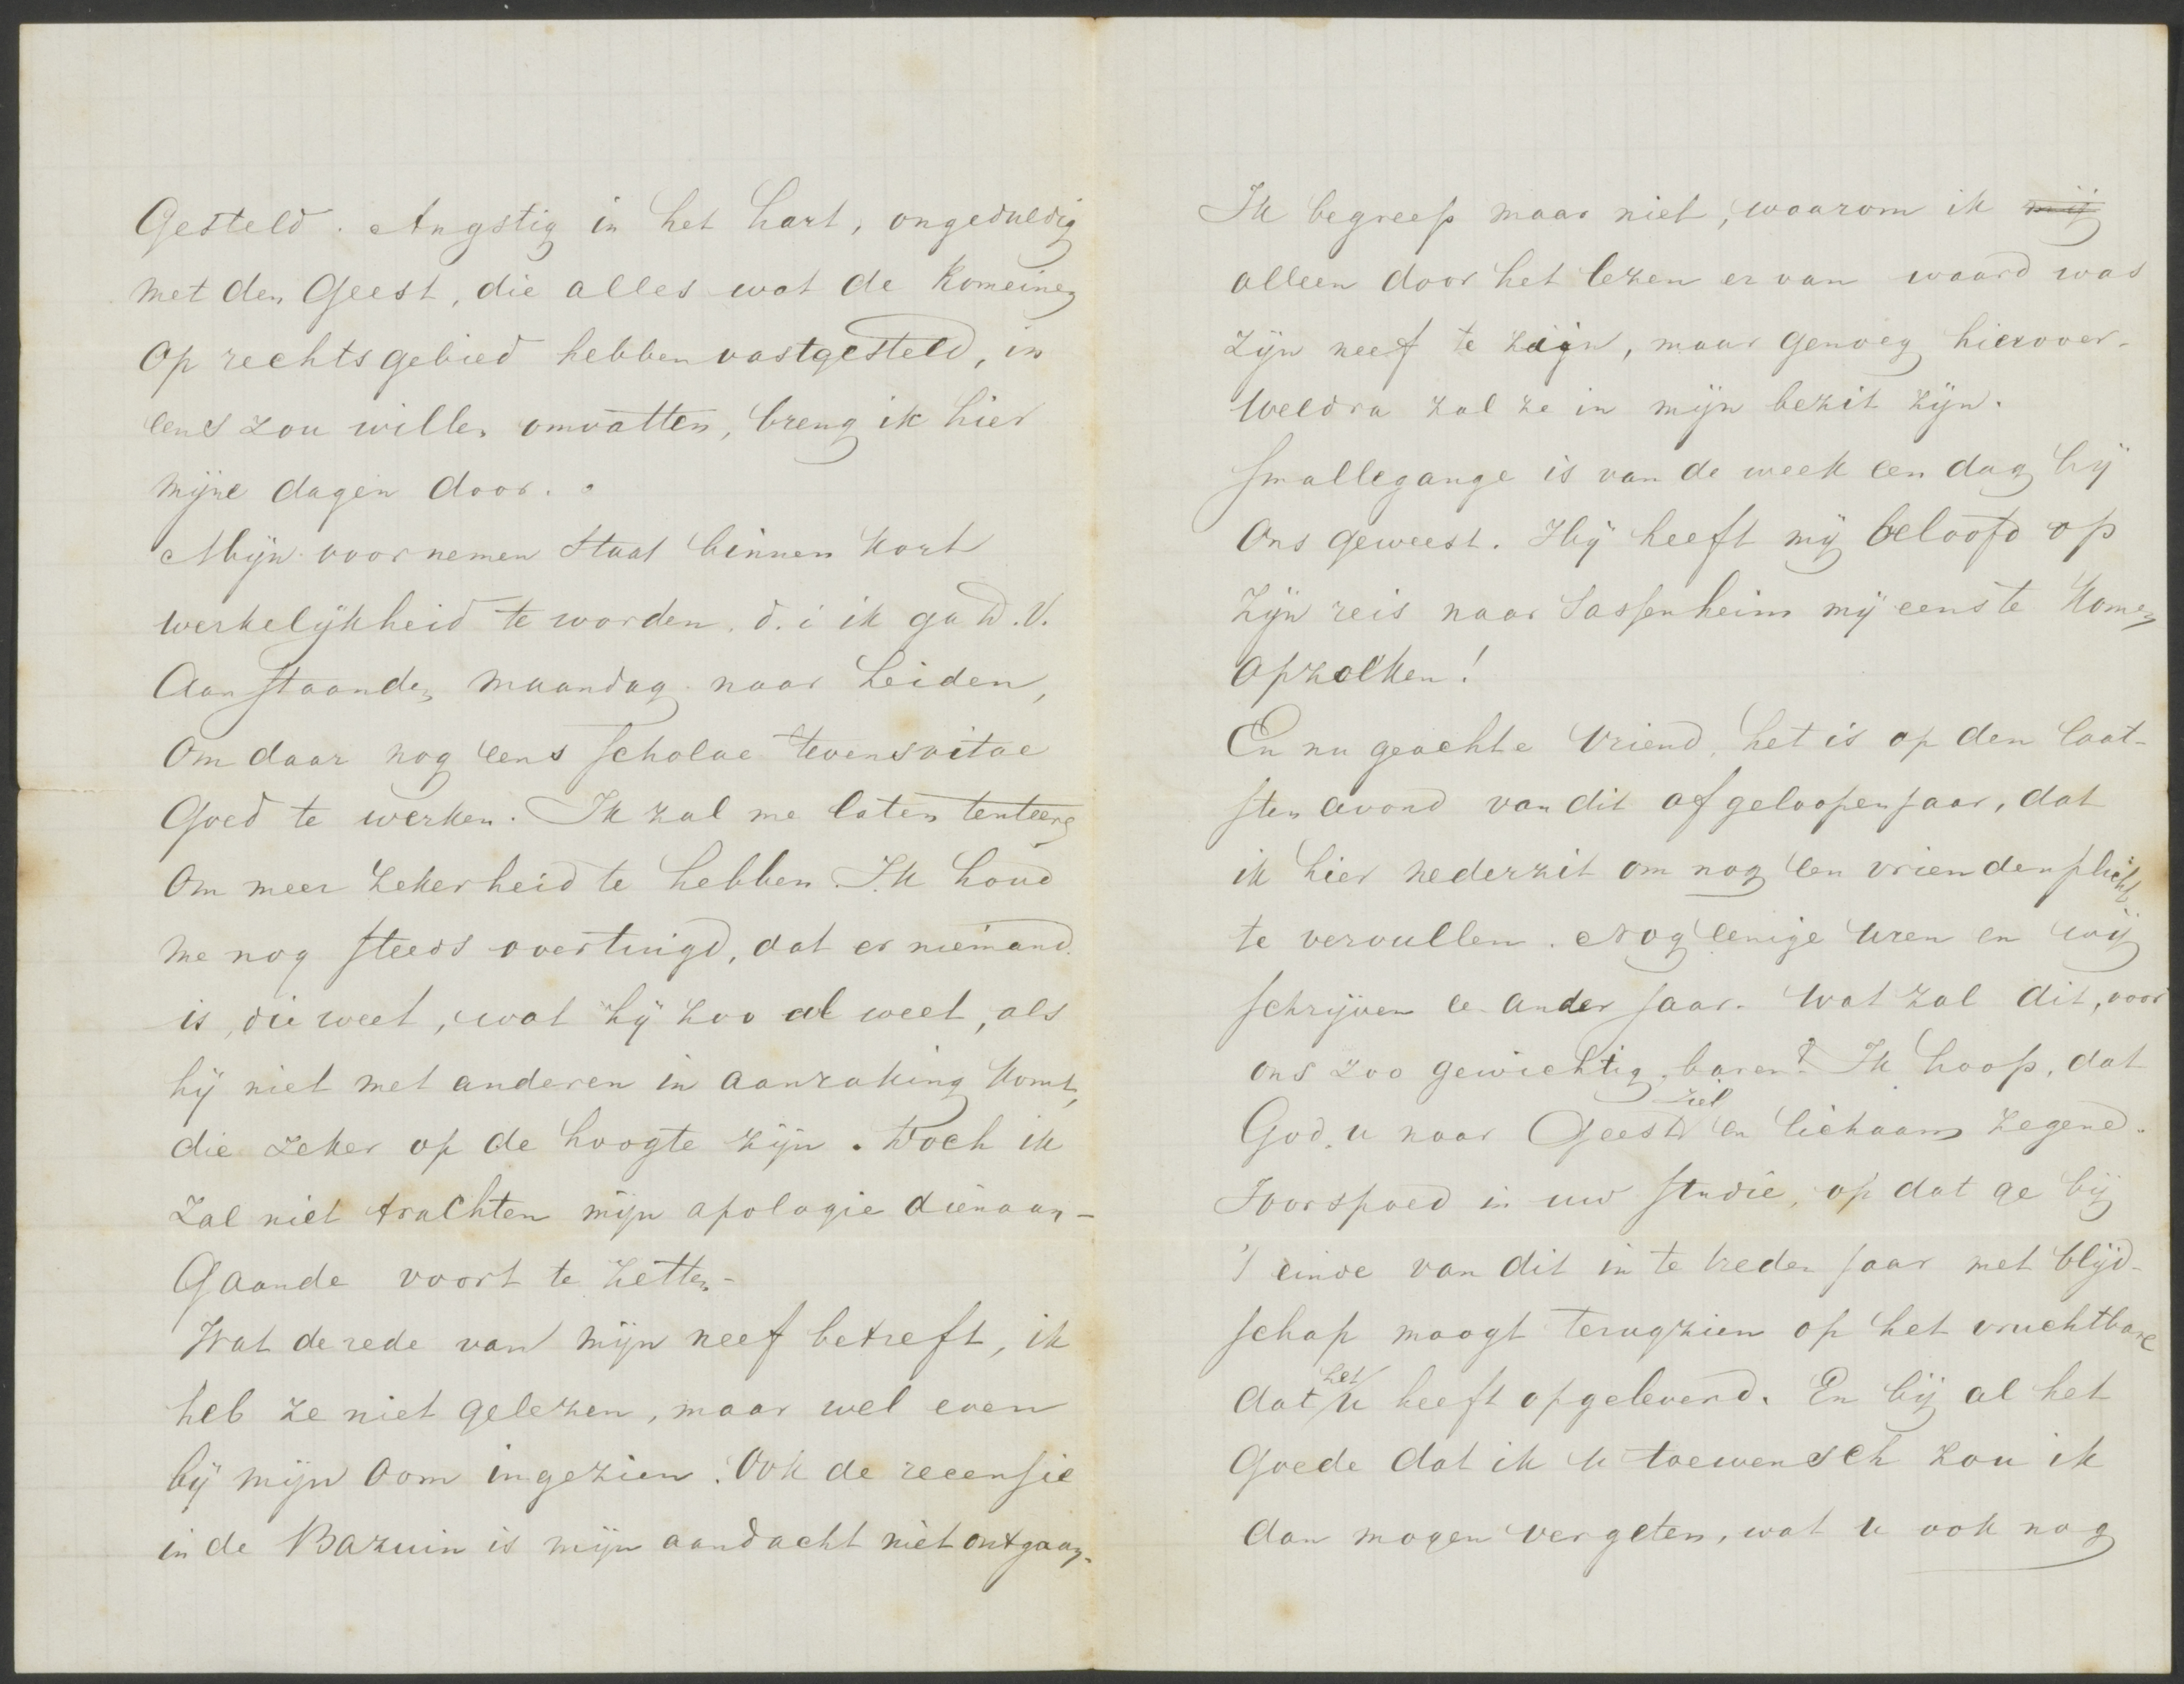 Gesteld. Angstig in het hart, ongeduldig
met den Geest, die alles wat de Romeinen
op rechtsgebied hebben vastgesteld, in
eens zou willen omvatten, breng ik hier
mijne dagen door.
Mijn voornemen staat binnen kort
werkelijkheid te worden, d. i ik ga D.V.
Aanstaanden maandag naar Leiden,
Om daar nog eens scholae tevens vitae
Goed te werken. Ik zal me laten tenteeren
Om meer zekerheid te hebben. Ik houd
me nog steeds overtuigd, dat er niemand
is, die weet, wat hij zoo al weet, als
hij niet met anderen in aanraking komt,
die zeker op de hoogte zijn. Doch ik
Zal niet trachten mijn apologie dienaan-
Gaande voort te zetten-
Wat de rede van mijn neef betreft, ik
heb ze niet gelezen, maar wel even
bij mijn oom ingezien. Ook de recensie
in de Bazuin is mijn aandacht niet ontgaan.
Ik begreep maar niet, waarom ik mij
alleen door het lezen er van waard was
zijn neef te zijn, maar genoeg hierover-
Weldra zal ze in mijn bezit zijn.
Smallegange is van de week een dag bij
Ons geweest. Hij heeft mij beloofd op
zijn reis naar Sassenheim mij eens te komen
opzoeken!
En nu geachte vriend, het is op den laat-
sten avond van dit afgeloopen jaar, dat
ik hier nederzit om nog een vriendenplicht
te vervullen. Nog eenige uren en wij
schrijven een ander jaar. Wat zal dit, voor
ons zoo gewichtig, baren? Ik hoop, dat
God u naar Geest ziel en lichaam zegend.
Voorspoed in uw studie, op dat ge bij
't einde van dit in te treden jaar met blijd-
schap moogt terugzien op het vruchtbare
dat het u heeft opgeleverd. En bij al het
Goede dat ik u toewensch zou ik
dan mogen vergeten, wat u ook nog